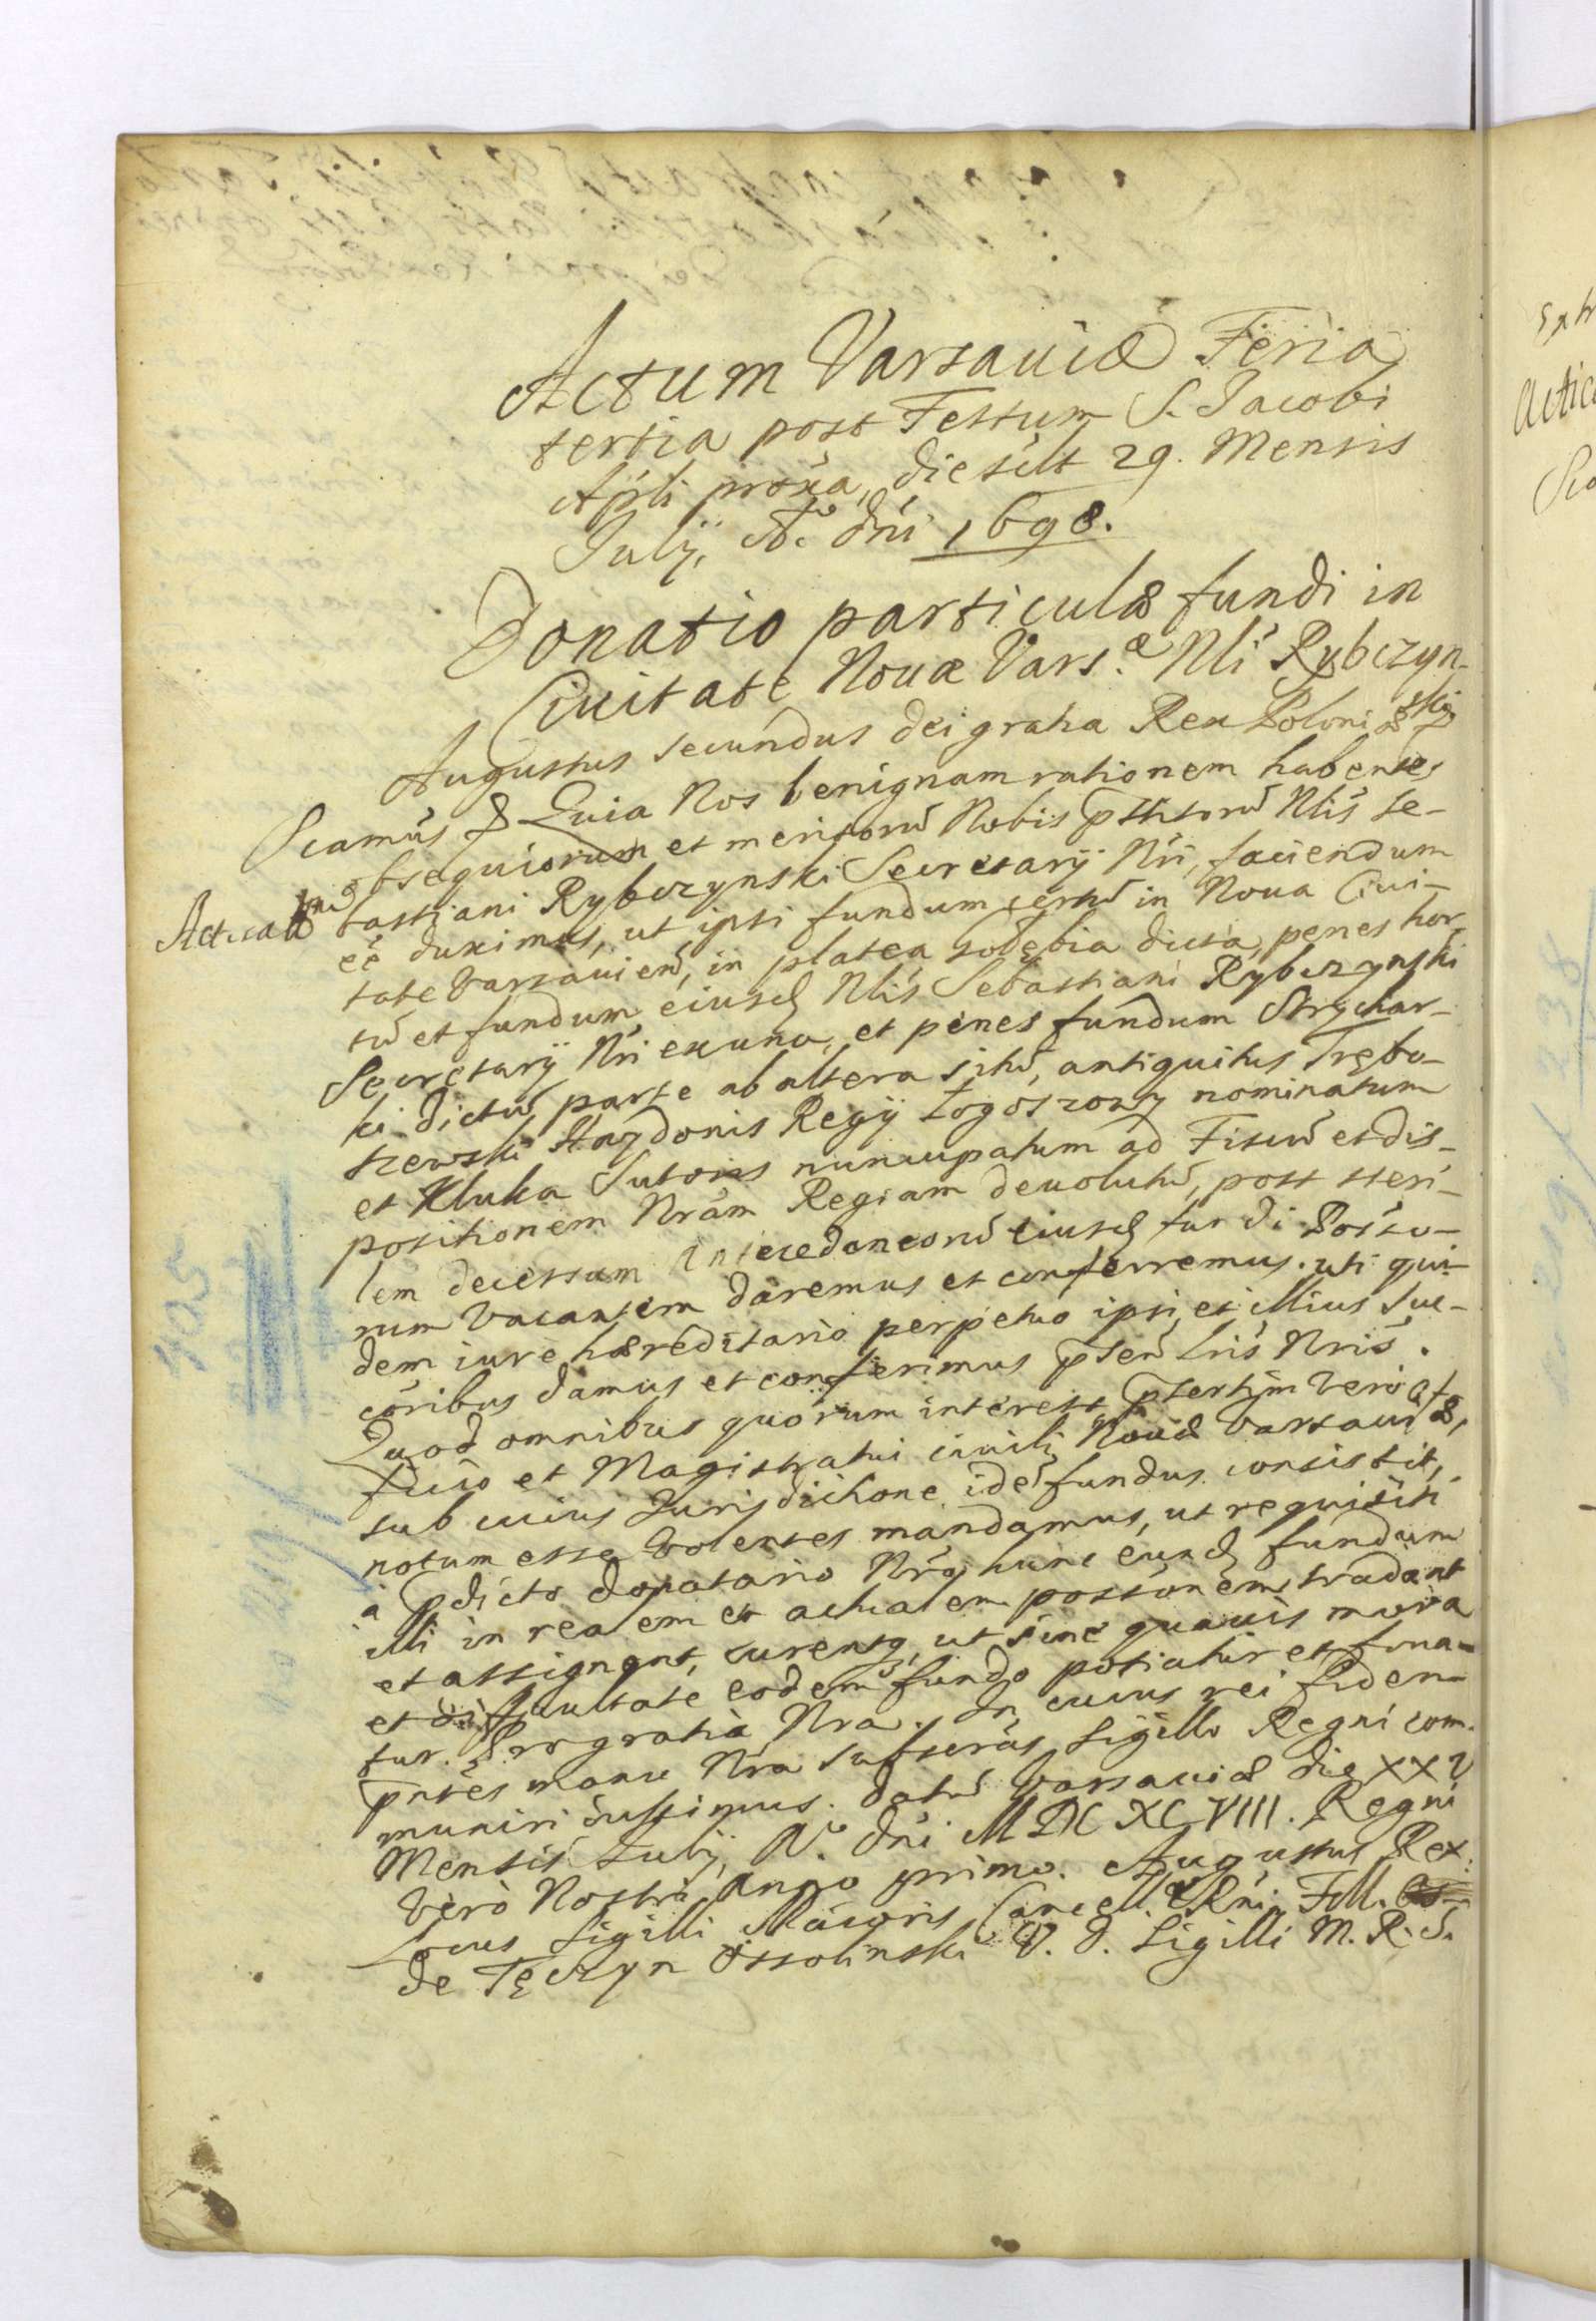 Actum Varsauiæ Feria
tertia post Festum S. Jacobi
Apli proxa, die scilt 29. Mensis
Julij, Ao. Dni 1698.
Donatio particulæ fundi in
Ciuitate Noua Vars.æ Nli Rybczyn-
ski
Augustus secundus dei gratia Rex Poloniæ &
Scamus & Quia Nos benignam rationem habentes
obsequiorum et meritorū Nobis pstitorū Nlis Se-
Acticatū
bastiani Rybczynski Secretarij Nri, faciendum
eē duximus, ut ipsi fundum certū in Noua Ciui-
tate Varsauien, in platea Zolębia dicta, penes hor-
tū et fundum eiusd Nlis Sebastiani Rybczynski
Secretarij Nri ex una, et penes fundum Strychar-
ki dictū, parte ab altera sitū, antiquitus Trębu-
szewski Haydonis Regij Łogoszowy nominatum
et Kluka Sutoris nuncupatum ad Fiscū et dis-
positionem Nram Regiam deuolutū, post steri-
lem decessum Antecedaneorū eiusd fundi Posso-
rum Vacantem daremus et conferremus. uti qui-
dem iure hæreditario perpetuo ipsi, et illius suc-
coribus damus et conferimus pſen Lris Nris.
Quod omnibus quorum interest, psertim vero Offi-
cio et Magistratui ciuili Nouæ Varsauiæ,
sub cuius Jurisdictione idē fundus consistit,
notum esse Volentes mandamus, ut requisiti
a pdicto donatario Nro, hunc eund fundum
illi in realem et actualem possionem tradant
et assignent, curentq, ut sine quauis mora
et difficultate eodem fundo potiatur et frua-
tur. Pro gratia Nra. In cuius rei fidem
pntes manu Nra subscras, Sigillo Regni com-
muniri iussimus. Datū Varsauiæ die XXV
Mensis Julij, Ao. Dni MDCXCVIII. Regni
Vero Nostri Anno primo. Augustus Rex.
Locus Sigilli Maioris Cancell. Rni. F. M.
de Tęczyn Ossolinski V. D. Sigilli M. R. S.